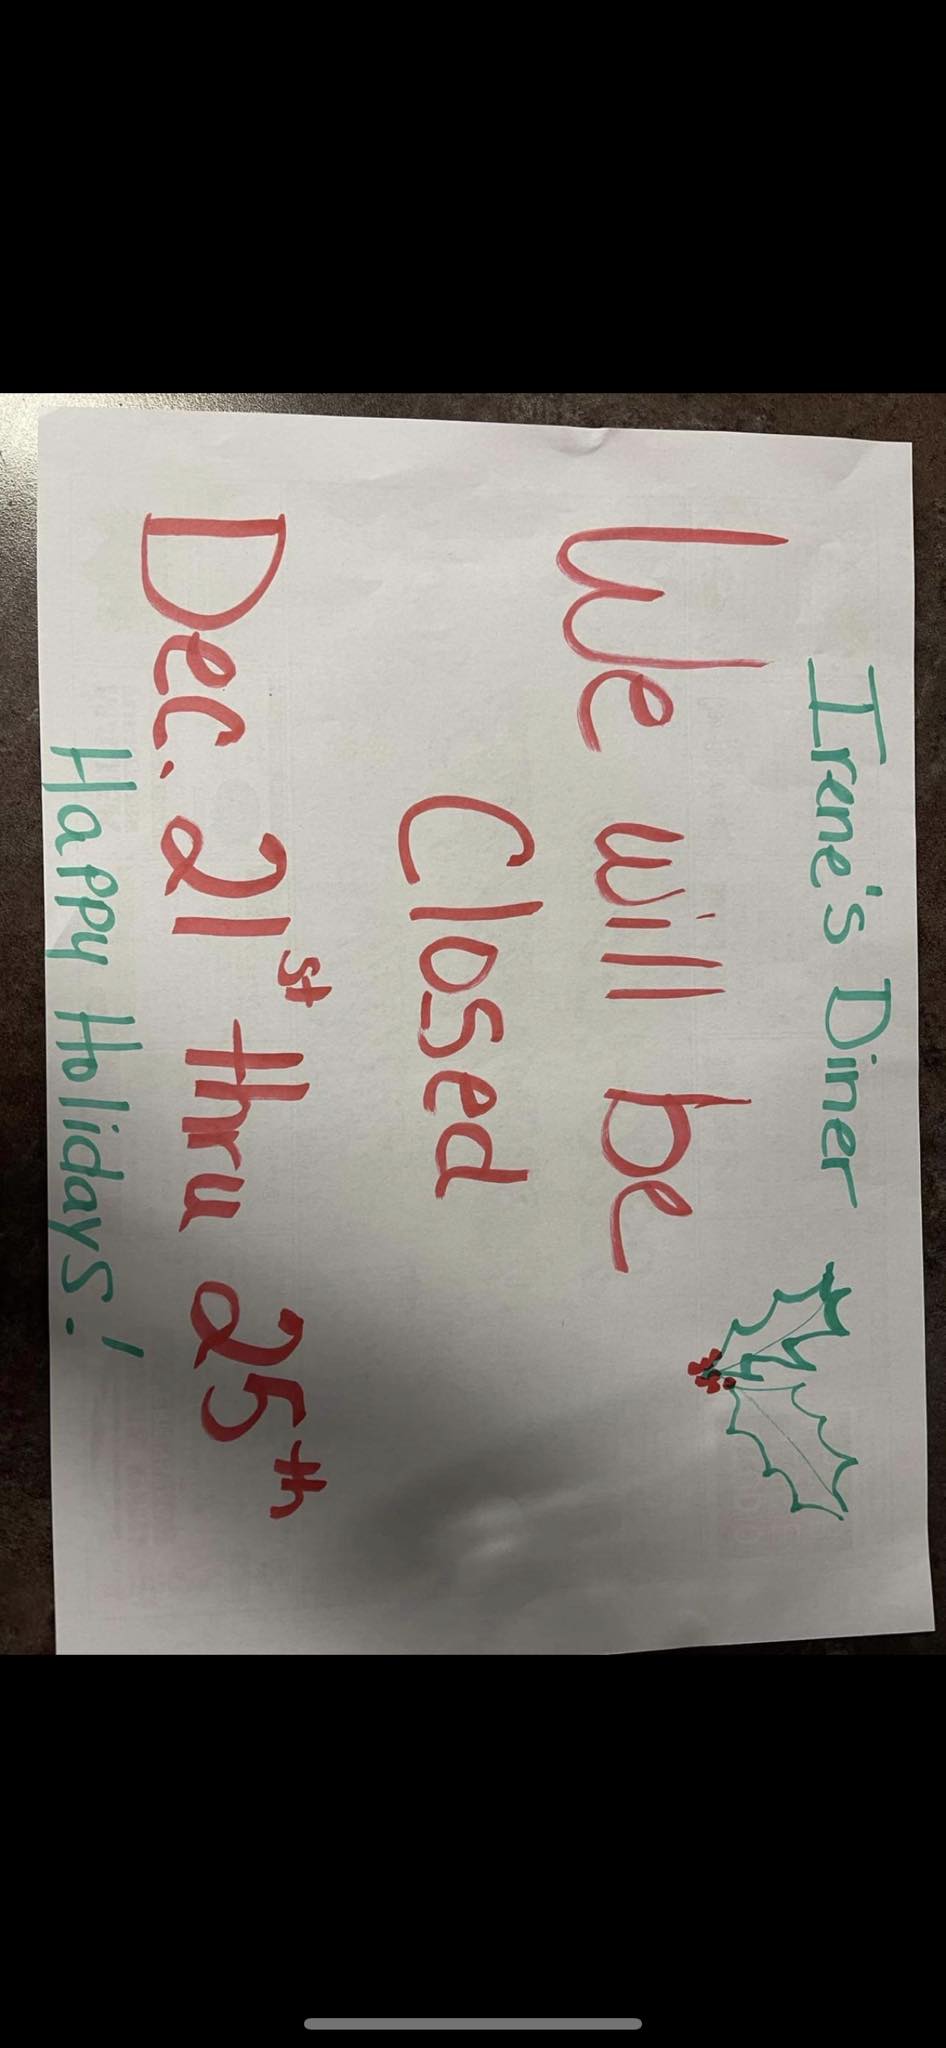 Irene's Diner
We will be
Closed
Dec. 21st thru 25th
Happy Holidays!